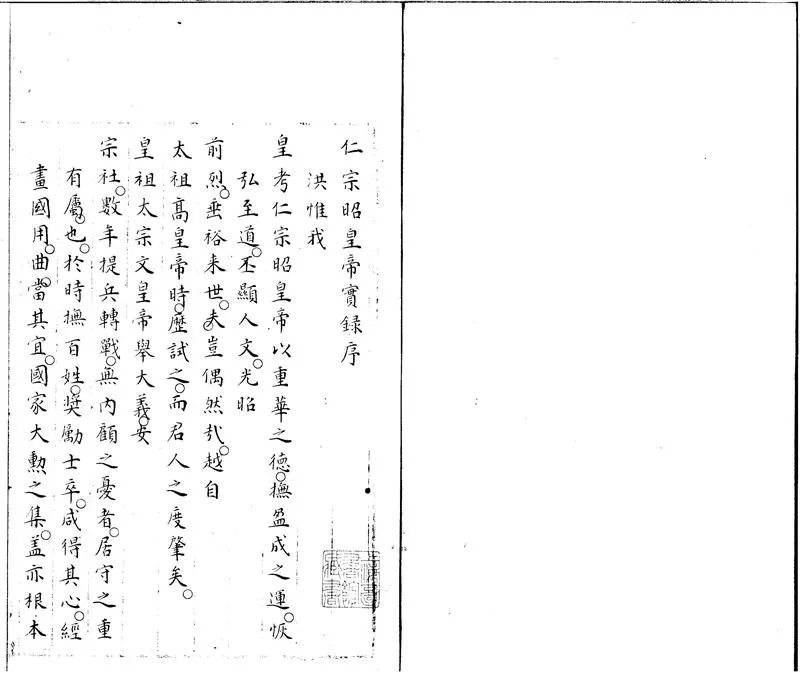 仁宗昭皇帝實錄序
洪惟我
皇考仁宗昭皇帝以重華之德。撫盈成之運。恢
弘至道。丕顯人文。光昭
前烈。垂裕來世。夫豈偶然哉。越自
太祖高皇帝時。歷試之。而君人之度肇矣。
皇祖太宗文皇帝舉大義。安
宗社。數年提兵轉戰。無內顧之憂者。居守之重
有屬也。於時撫百姓。奬勵士卒。咸得其心。經
畫國用。曲當其宜。國家大勳之集。盖亦根本